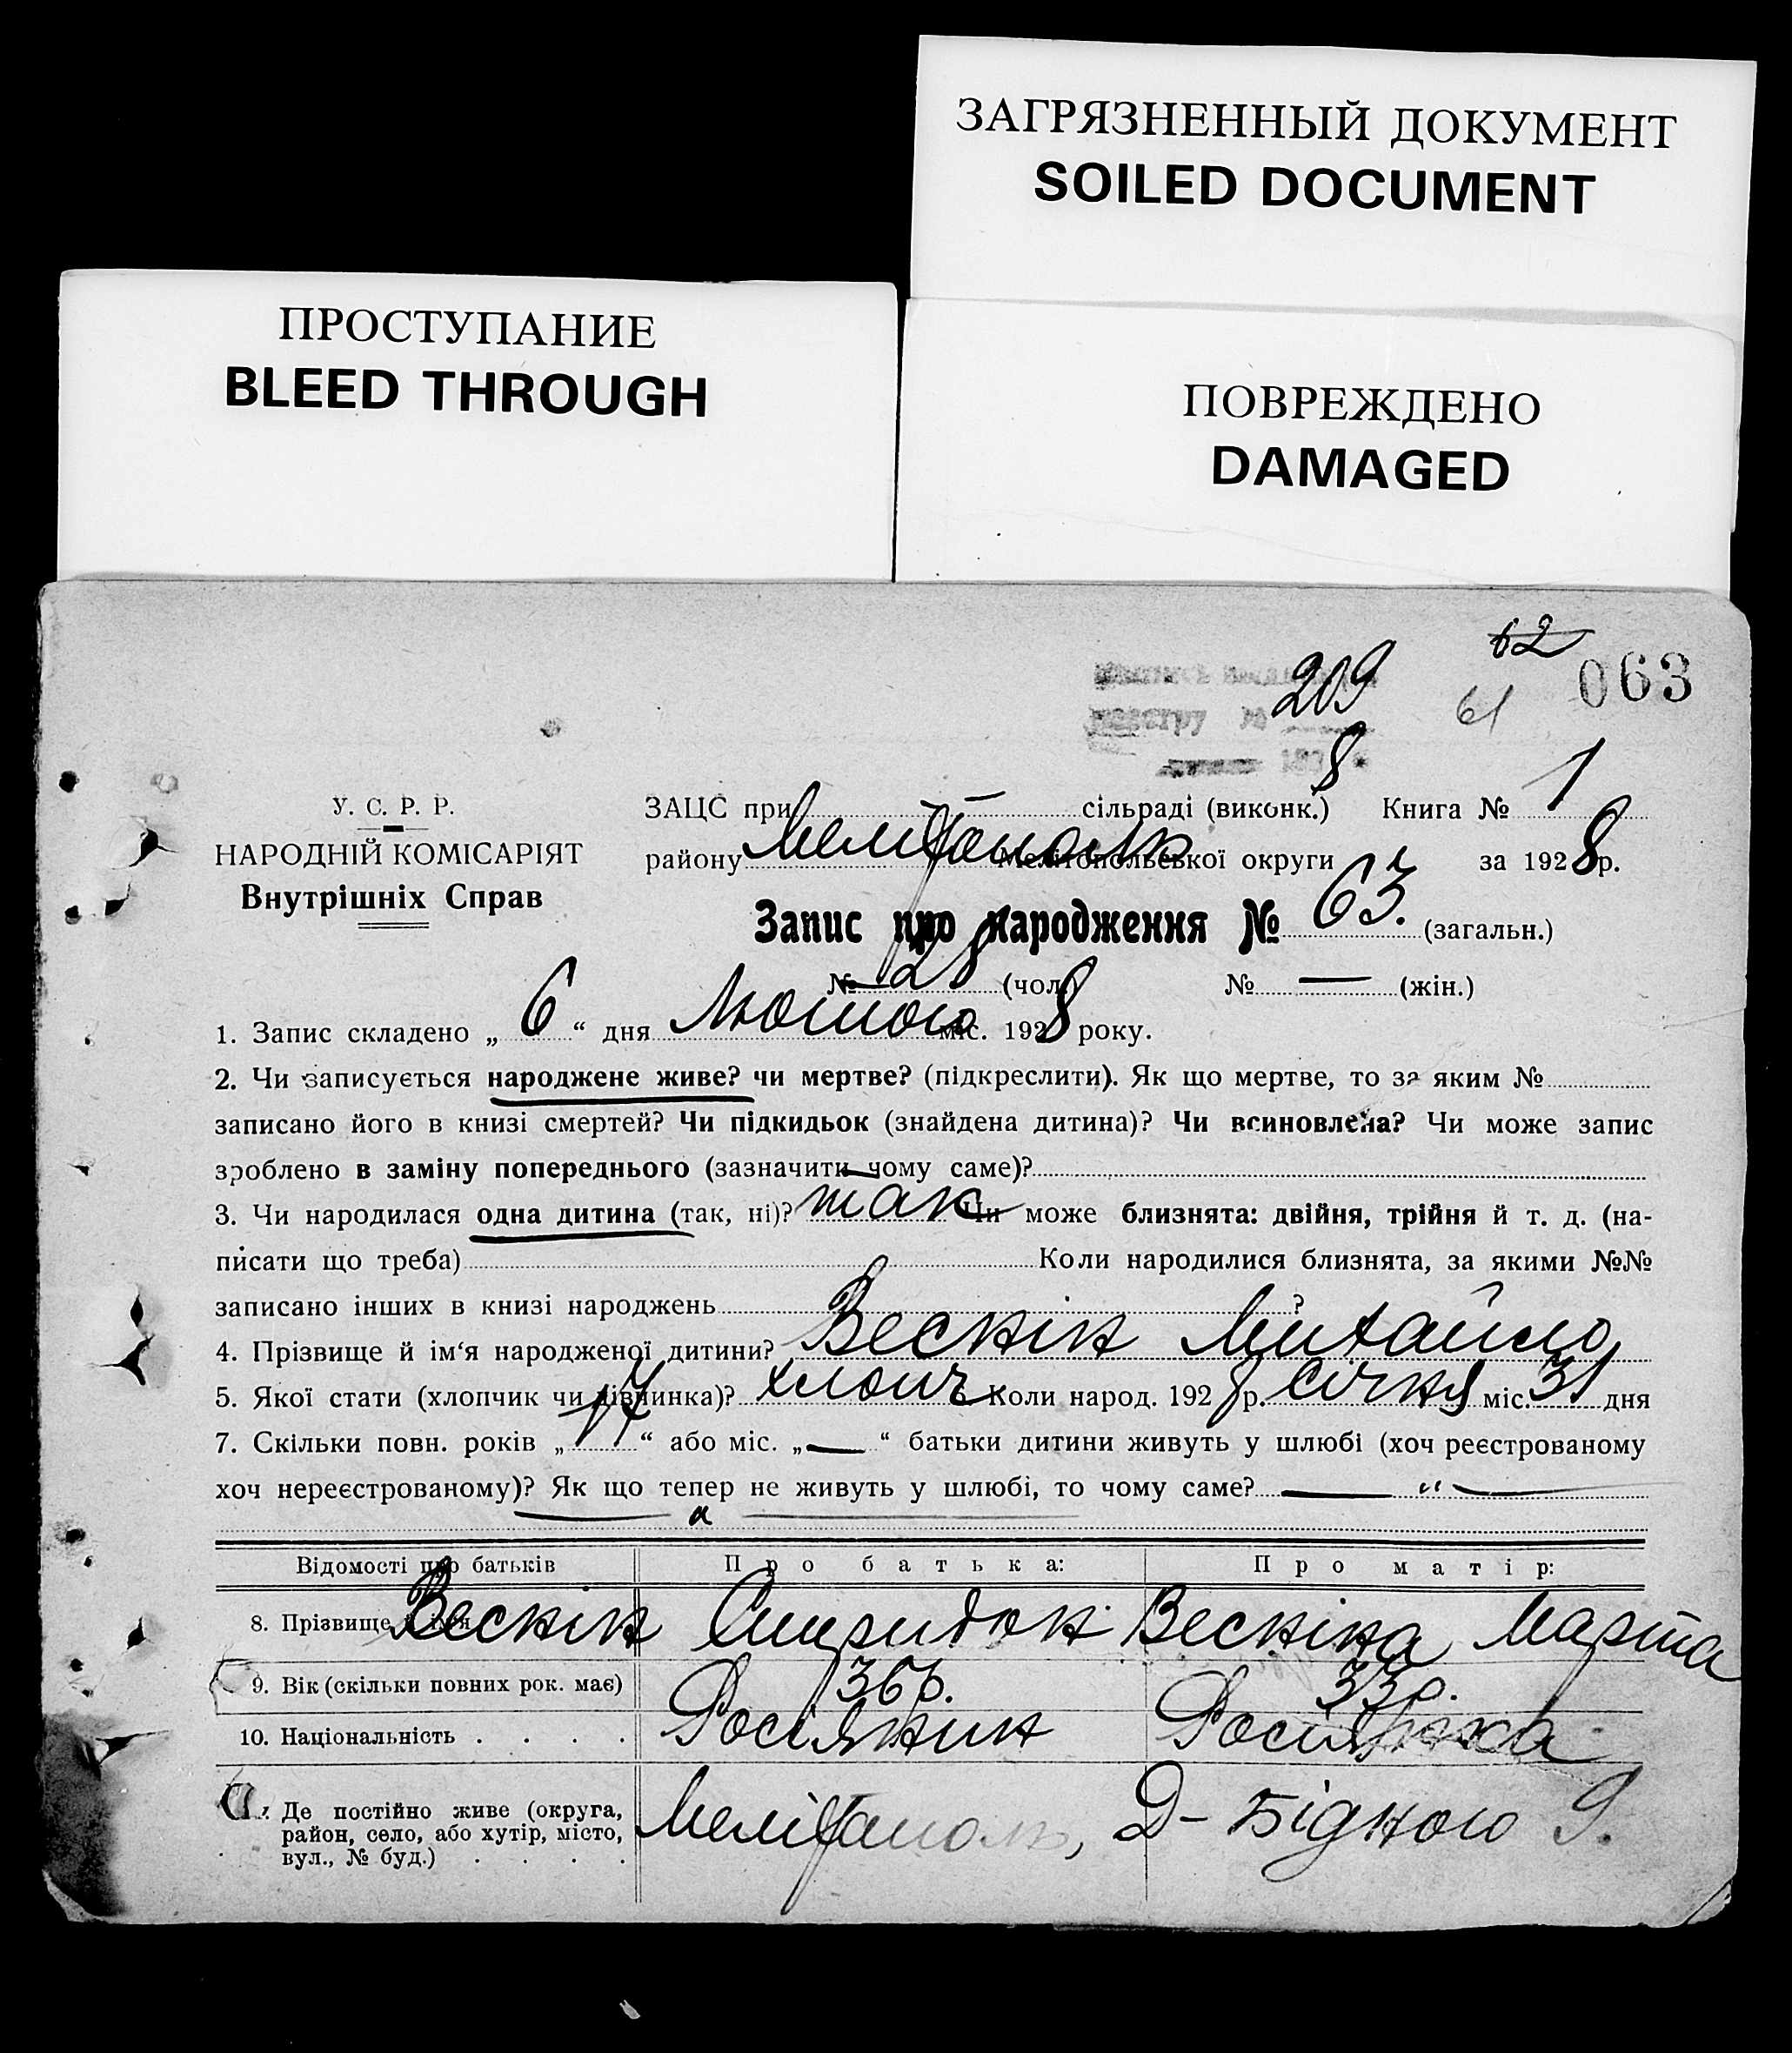 ЗАГРЯЗНЕННЫЙ ДОКУМЕНТ
SOILED DOCUMENT
ПРОСТУПАНИЕ
BLEED THROUGH
ПОВРЕЖДЕНО
DAMAGED
62
209 61 063
8
У. С. Р. Р.
НАРОДНІЙ КОМІСАРІЯТ
Внутрішніх Справ
ЗАЦС при — сільраді (виконк.) Книга № 1
району Мелітополь Мелітопольської округи за 1928 р.
Запис про народження № 63. (загальн.)
№ 28 (чол.) № — (жін.)
1. Запис складено „ 6 “ дня Лютого міс. 1928 року.
2. Чи записується народжене живе? чи мертве? (підкреслити). Як що мертве, то за яким №
записано його в книзі смертей? Чи підкидьок (знайдена дитина)? Чи всиновлена? Чи може запис
зроблено в заміну попереднього (зазначити чому саме)?
3. Чи народилася одна дитина (так, ні)? так Чи може близнята: двійня, трійня й т. д. (на-
писати що треба) Коли народилися близнята, за якими №№
записано інших в книзі народжень ?
4. Прізвище й ім‘я народженої дитини? Вескін Михайло
5. Якої стати (хлопчик чи дівчинка)? хлопч. Коли народ. 1928 р. Січня міс. 31 дня
7. Скільки повн. років „ 17 “ або міс. „ — “ батьки дитини живуть у шлюбі (хоч реєстрованому
хоч нереєстрованому)? Як що тепер не живуть у шлюбі, то чому саме? — „ —
Відомості про батьків Про батька: Про матір:
8. Прізвище й ім‘я Вескін Спиридон Вескіна Марта
9. Вік (скільки повних рок. має) 36 р. 33 р.
10. Національність . . . . Росіянин Росіянка
Де постійно живе (округа,
район, село, або хутір, місто,
вул., № буд.) . . . . Мелітополь, Д-Бідного 9.